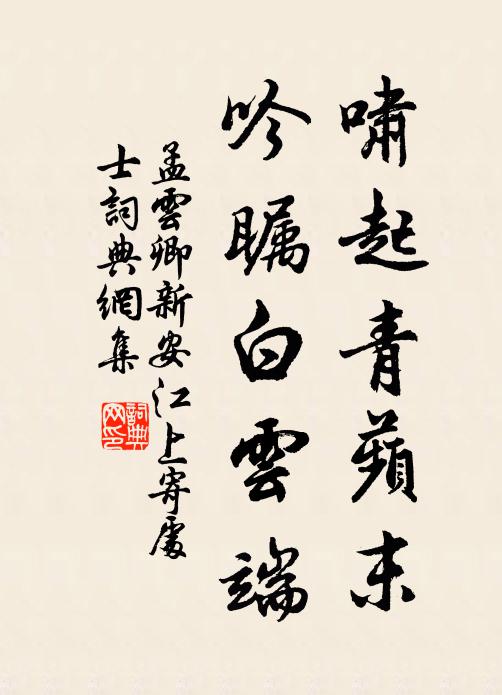 啸起青蘋末
吟瞩白雲端
孟雲卿新安江上寄處
士詞典網集
詞典网印